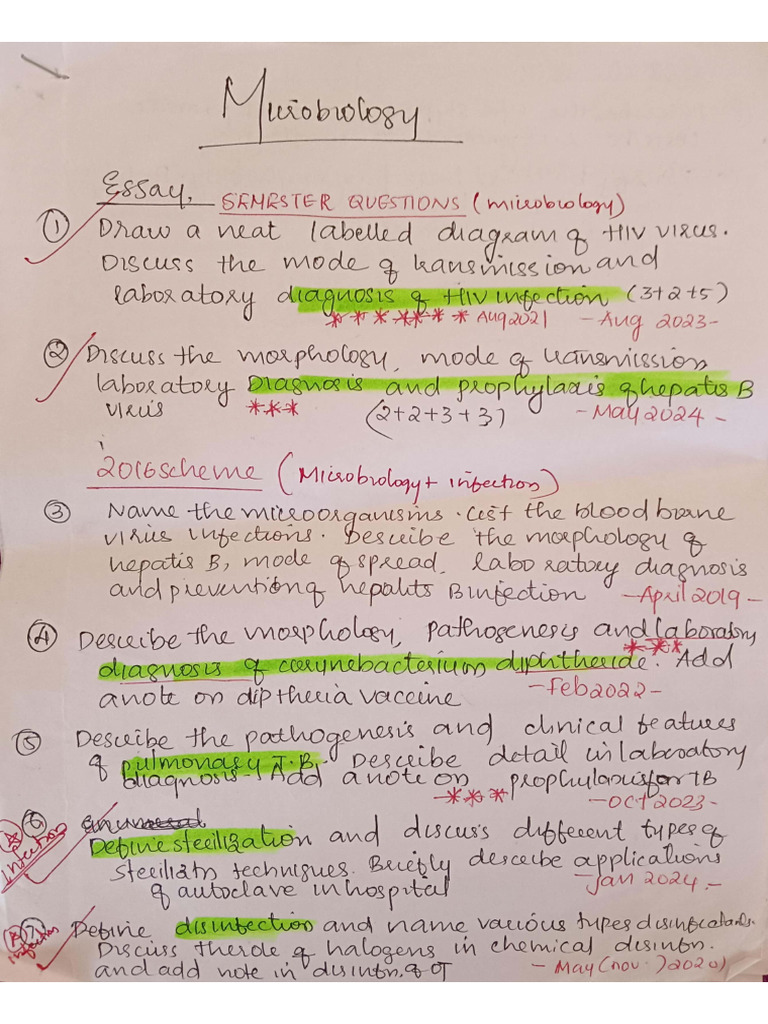 Microbiology
Essay.
SEMESTER QUESTIONS (microbiology)
① Draw a neat labelled diagram of HIV virus.
Discuss the mode of transmission and
laboratory diagnosis of HIV infection (3+2+5)
******* Aug 2021 - Aug 2023-
② Discuss the morphology, mode of transmission
laboratory Diagnosis and prophylaxis of hepatis B
virus *** (2+2+3+3) - May 2024 -
2016 scheme (Microbiology + infection)
③ Name the microorganisms. List the blood borne
virus infections. Describe the morphology of
hepatis B, mode of spread, laboratory diagnosis
and prevention of hepatits B infection - April 2019 -
④ Describe the morphology, pathogenesis and laboratory
***
diagnosis of corynebacterium diphtheride. Add
a note on diptheria vaccine - Feb 2022 -
⑤ Describe the pathogenesis and clinical features
of pulmonary T.B. Describe detail in laboratory
diagnosis. Add a note on prophylaxis for TB
*** - OCT 2023 -
⑥
infection
Define sterilization and discuss different types of
steriliatn techniques. Briefly describe applications
of autoclave in hospital - Jan 2024. -
⑦ Define disinfection and name various types disinfectants.
infection
Discuss the role of halogens in chemical disinfn.
and add note in disinfn. of OT - May (nov.) 2020)